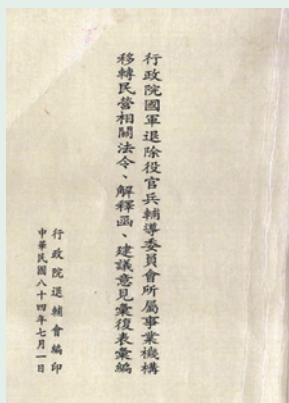 行政院國軍退除役官兵輔導委員會所屬事業機構
移轉民營相關法令、解釋函、建議意見彙復表彙編
行政院退輔會編印
中華民國八十四年七月一日